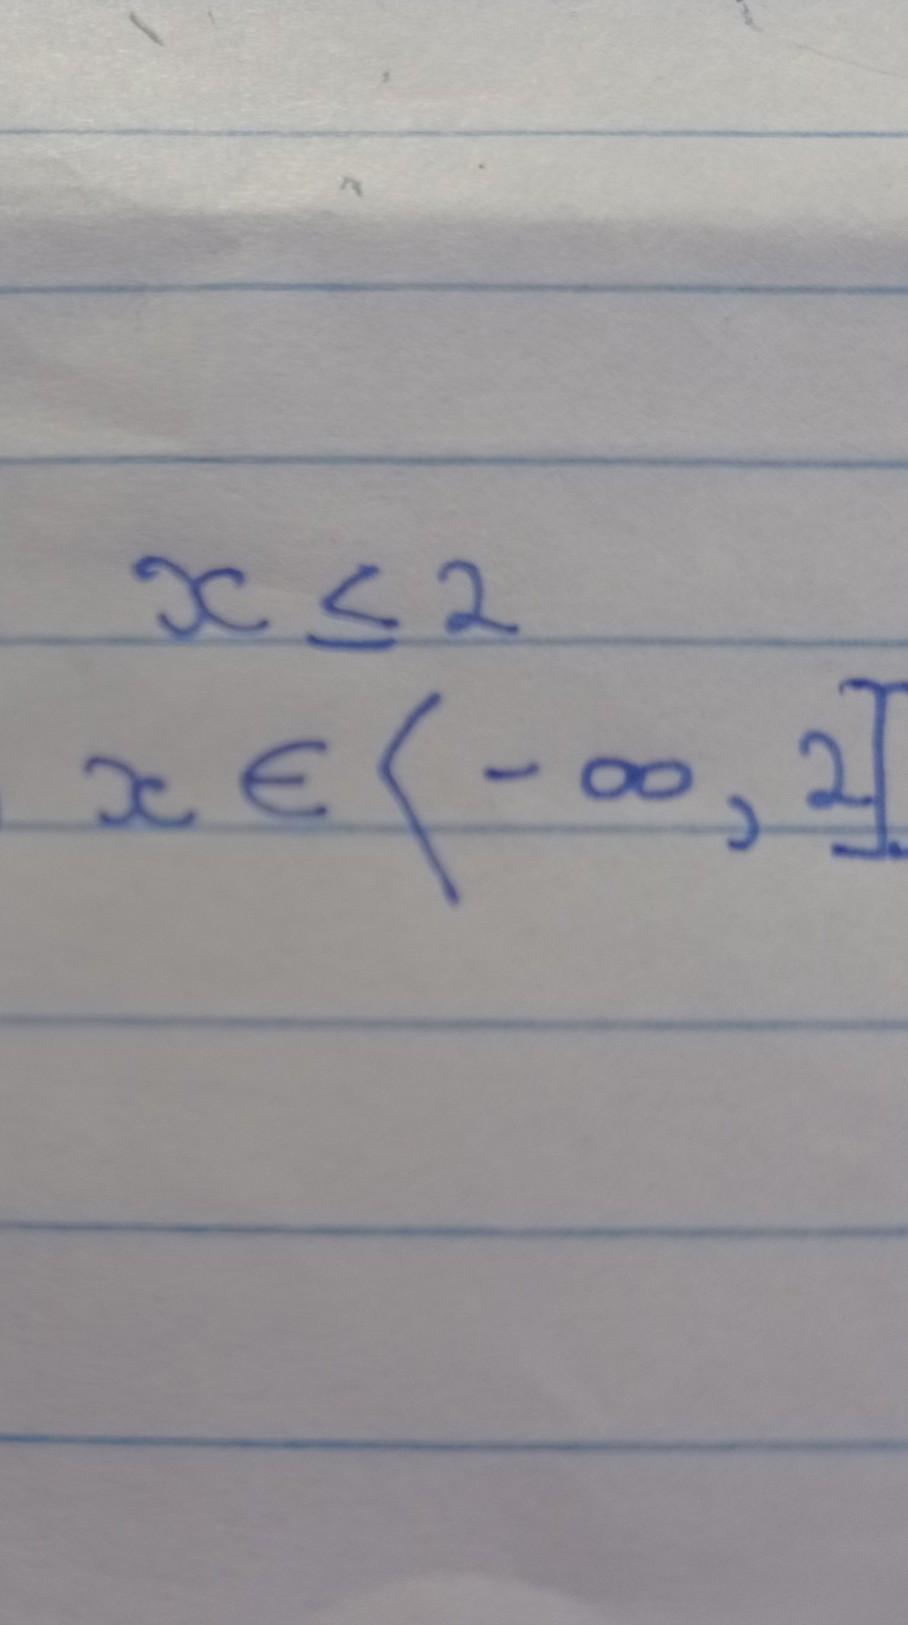 x ≤ 2
x ∈ ⟨ - ∞ , 2]